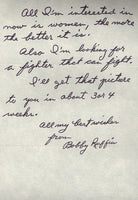 All I'm interested in
now is women, the more
the better it is.
Also I'm looking for
a fighter that can fight.
I'll get that picture
to you in about 3 or 4
weeks.
All my best wishes
from
Bobby